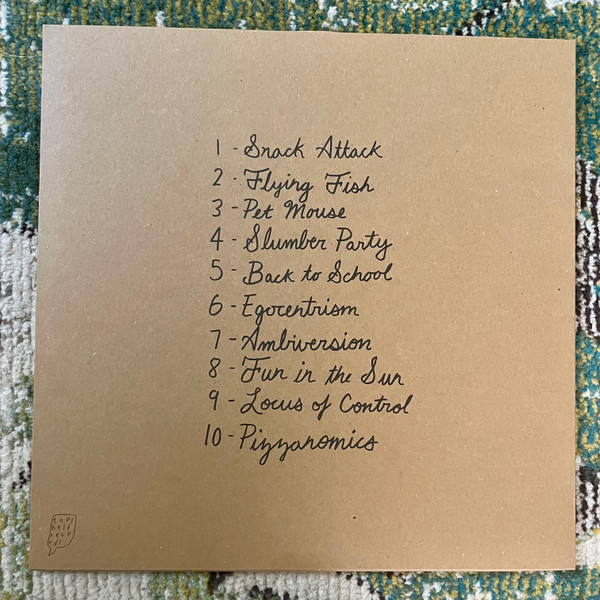 1 - Snack Attack
2 - Flying Fish
3 - Pet Mouse
4 - Slumber Party
5 - Back to School
6 - Egocentrism
7 - Ambiversion
8 - Fun in the Sun
9 - Locus of Control
10 - Pizzanomics
top
shelf
reco
rds